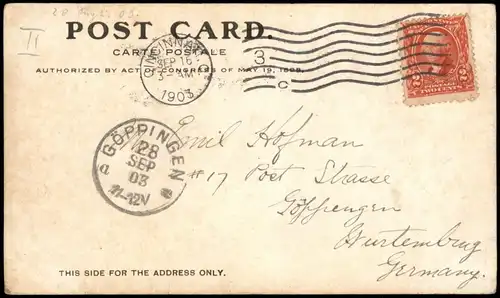 II
POST CARD.
CARTE POSTALE
AUTHORIZED BY ACT OF CONGRESS OF MAY 19, 1898.
CINCINNATI
SEP 16
5-AM
1903
3
C
2 2
POSTAGE
TWO CENTS
GÖPPINGEN
28
SEP
03
11-12V
a e
Emil Hofman
#17 Post Strasse
Göppengen
Wurtemburg
Germany.
THIS SIDE FOR THE ADDRESS ONLY.